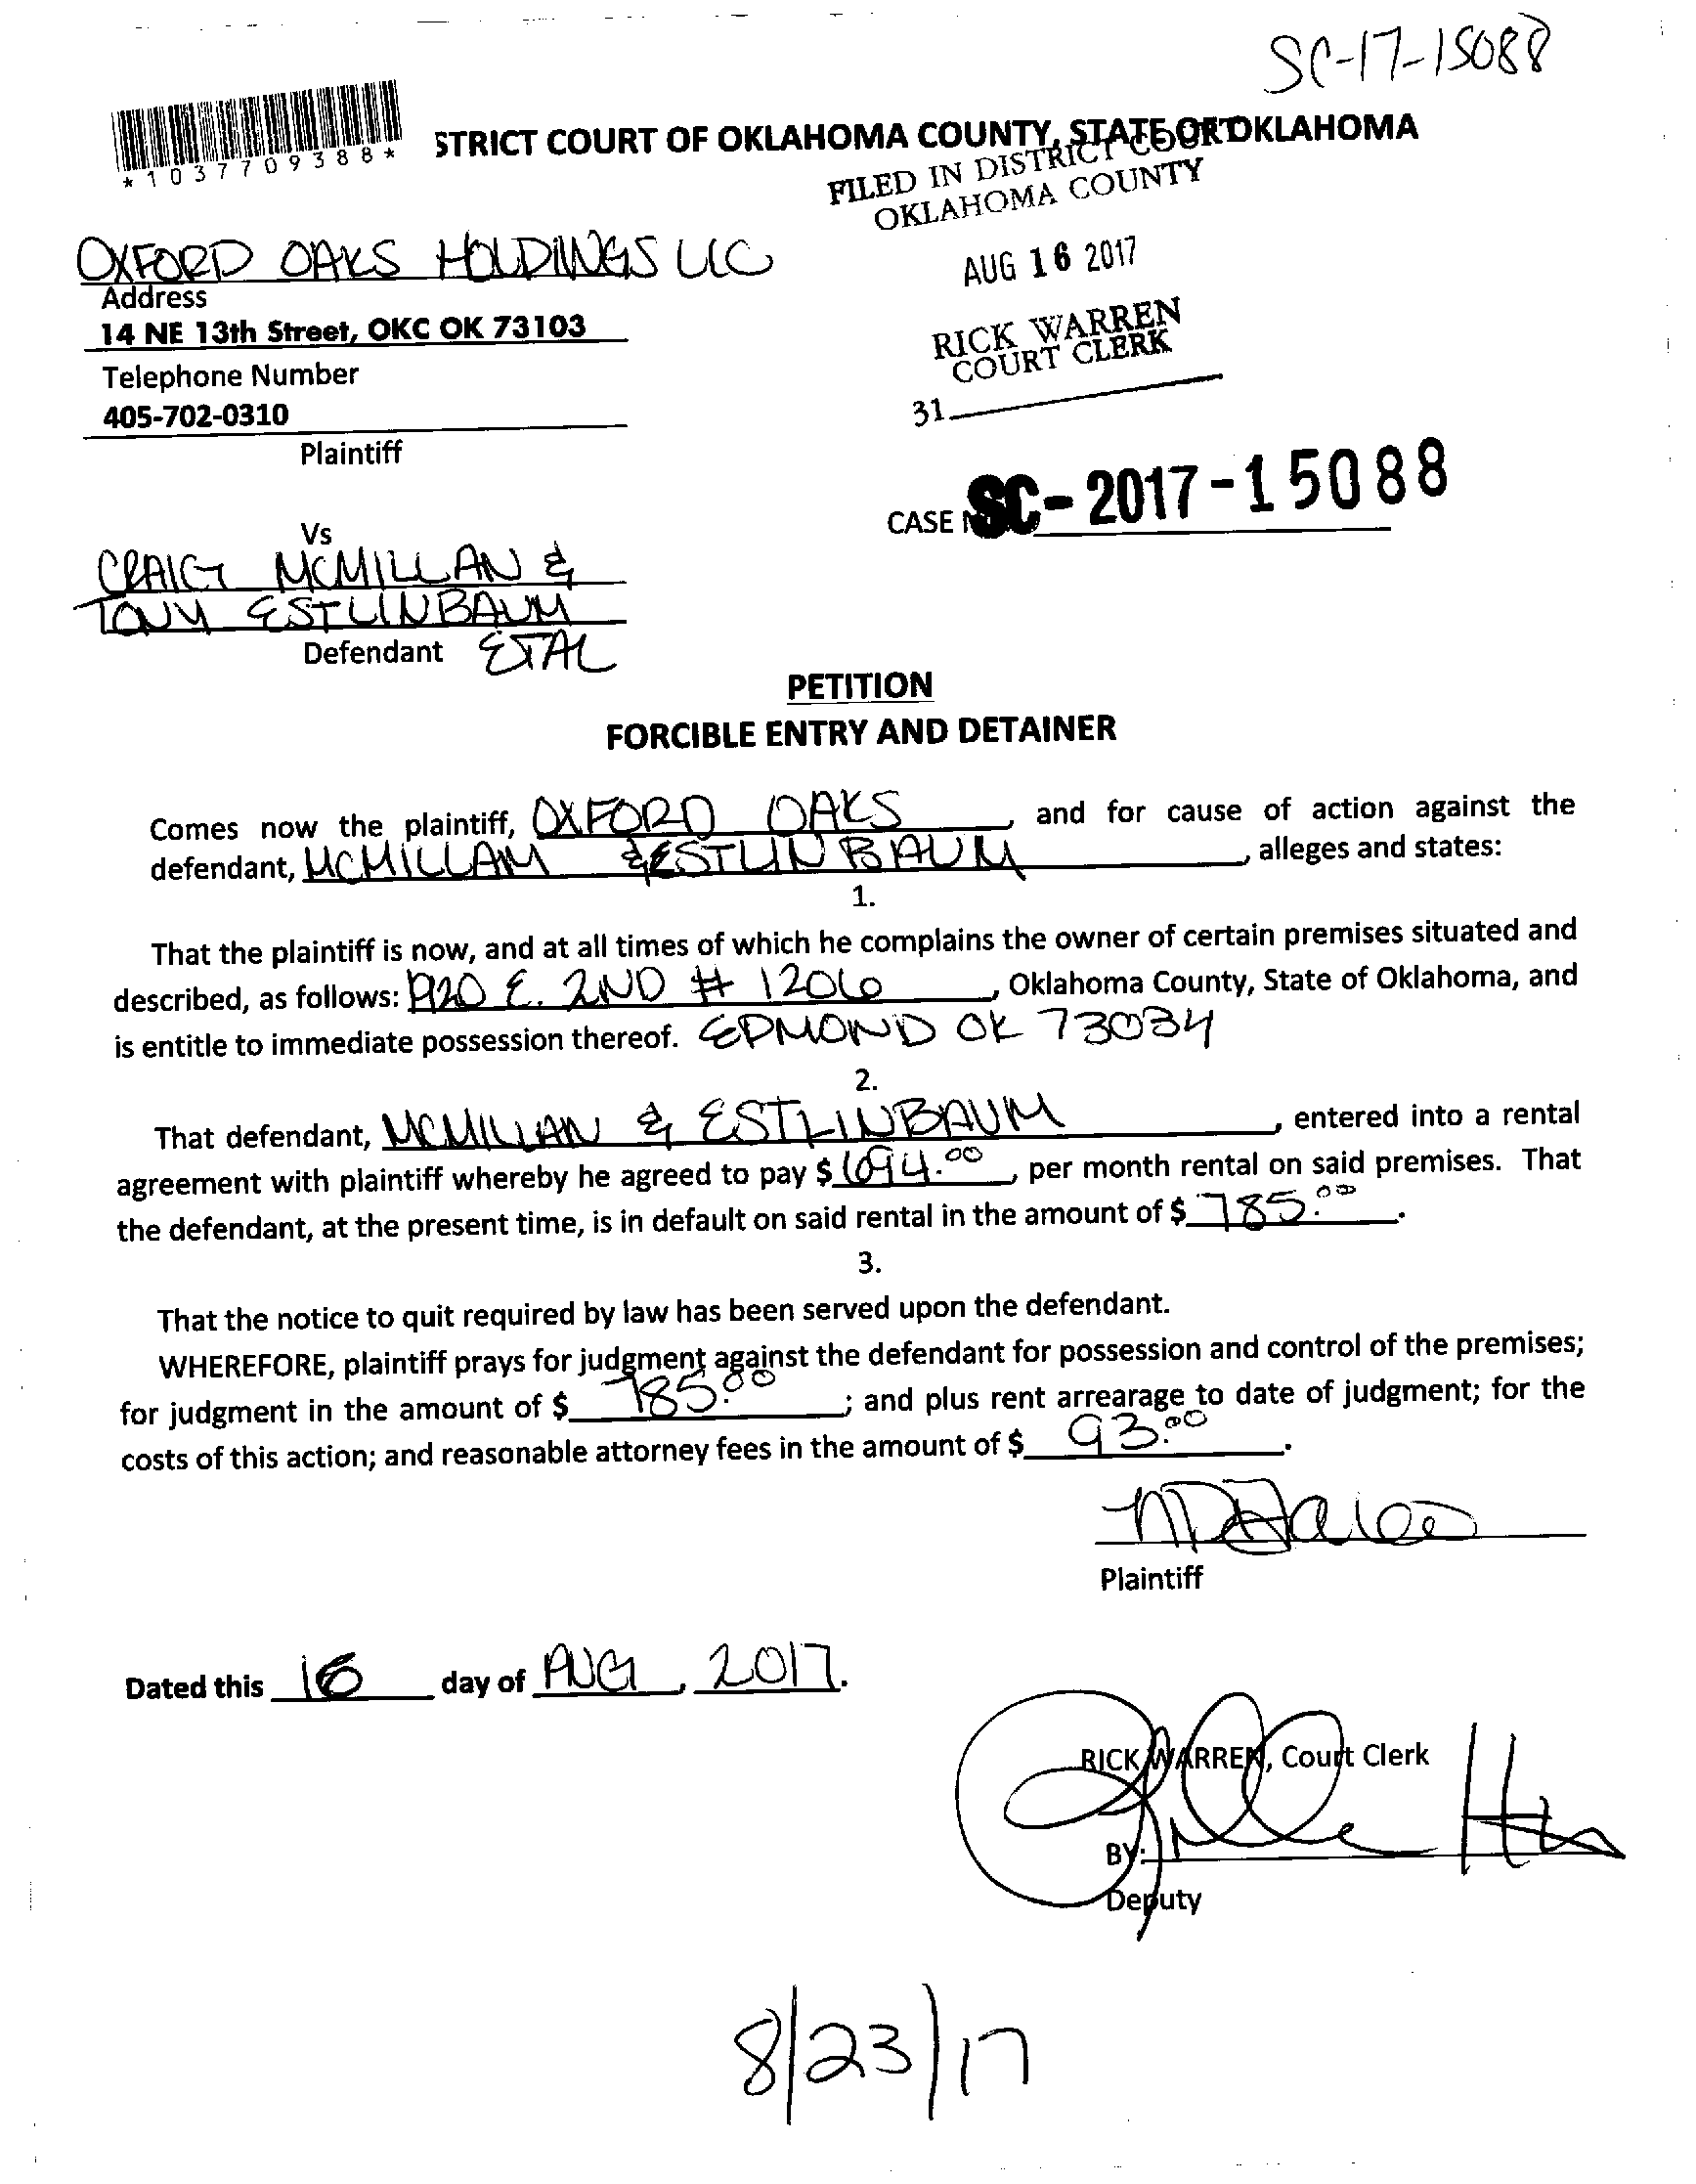 SC-17-15088
*1037709388*
STRICT COURT OF OKLAHOMA COUNTY, STATE OF OKLAHOMA
FILED IN DISTRICT COURT
OKLAHOMA COUNTY
OXFORD OAKS HOLDINGS LLC
AUG 16 2017
Address
14 NE 13th Street, OKC OK 73103
RICK WARREN
COURT CLERK
Telephone Number
405-702-0310
31
Plaintiff
CASE SC-2017-15088
Vs
CRAIG MCMILLAN &
TONY ESTLINBAUM
Defendant ETAL
PETITION
FORCIBLE ENTRY AND DETAINER
Comes now the plaintiff, OXFORD OAKS, and for cause of action against the
defendant, MCMILLAM & ESTLINBAUM, alleges and states:
1.
That the plaintiff is now, and at all times of which he complains the owner of certain premises situated and
described, as follows: 1920 E. 2ND # 1206, Oklahoma County, State of Oklahoma, and
is entitle to immediate possession thereof. EDMOND OK 73034
2.
That defendant, MCMILLAN & ESTLINBAUM, entered into a rental
agreement with plaintiff whereby he agreed to pay $ 1094.00, per month rental on said premises. That
the defendant, at the present time, is in default on said rental in the amount of $ 785.00.
3.
That the notice to quit required by law has been served upon the defendant.
WHEREFORE, plaintiff prays for judgment against the defendant for possession and control of the premises;
for judgment in the amount of $ 785.00; and plus rent arrearage to date of judgment; for the
costs of this action; and reasonable attorney fees in the amount of $ 93.00.
Plaintiff
Dated this 16 day of AUG, 2017.
RICK WARREN, Court Clerk
BY:
Deputy
8/23/17